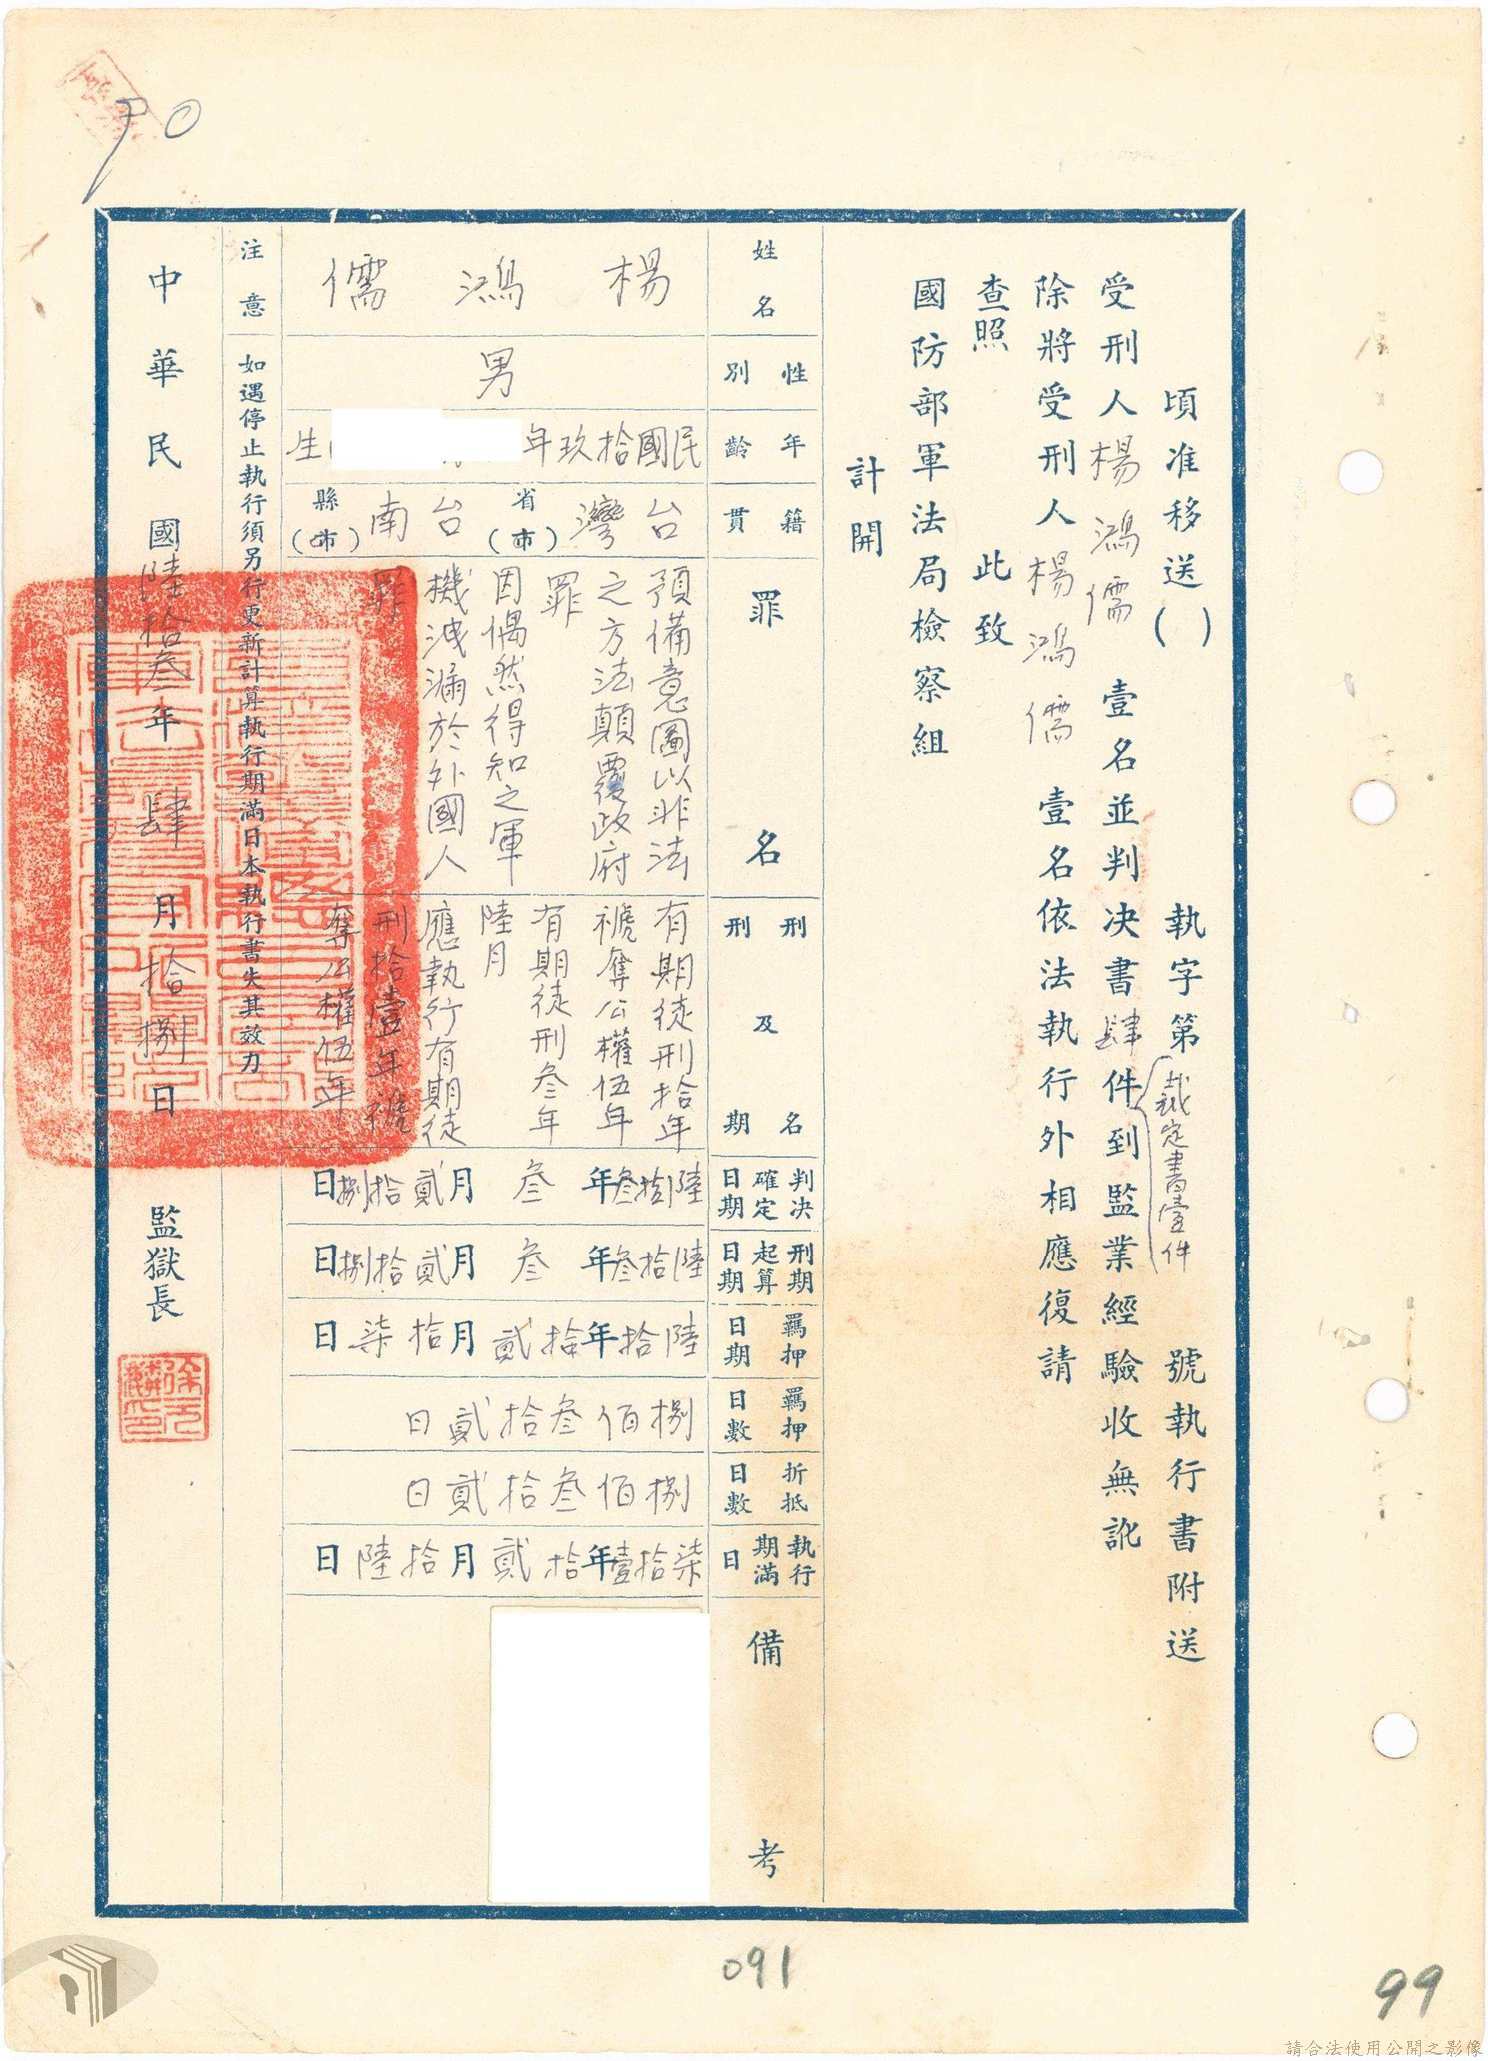 頃准移送( ) 執字第 號執行書附送
受刑人楊鴻儒 壹名並判決書肆件到監業經驗收無訛
裁定書壹件
除將受刑人楊鴻儒 壹名依法執行外相應復請
查照 此致
國防部軍法局檢察組
計開
姓名 楊鴻儒
性別 男
年齡 民國拾玖年 生
籍貫 台灣省(市) 台南縣(市)
罪名
預備意圖以非法
之方法顛覆政府
罪
因偶然得知之軍
機洩漏於外國人
罪
刑名及刑期
有期徒刑拾年
褫奪公權伍年
有期徒刑叁年
陸月
應執行有期徒
刑拾壹年褫
奪公權伍年
判決確定日期 陸拾叁年叁月貳拾捌日
刑期起算日期 陸拾叁年叁月貳拾捌日
羈押日期 陸拾年拾貳月拾柒日
羈押日數 捌佰叁拾貳日
折抵日數 捌佰叁拾貳日
執行期滿日 柒拾壹年拾貳月拾陸日
備考
注意 如遇停止執行須另行更新計算執行期滿日本執行書失其效力
中華民國陸拾叁年肆月拾捌日 監獄長
091
99
請合法使用公開之影像